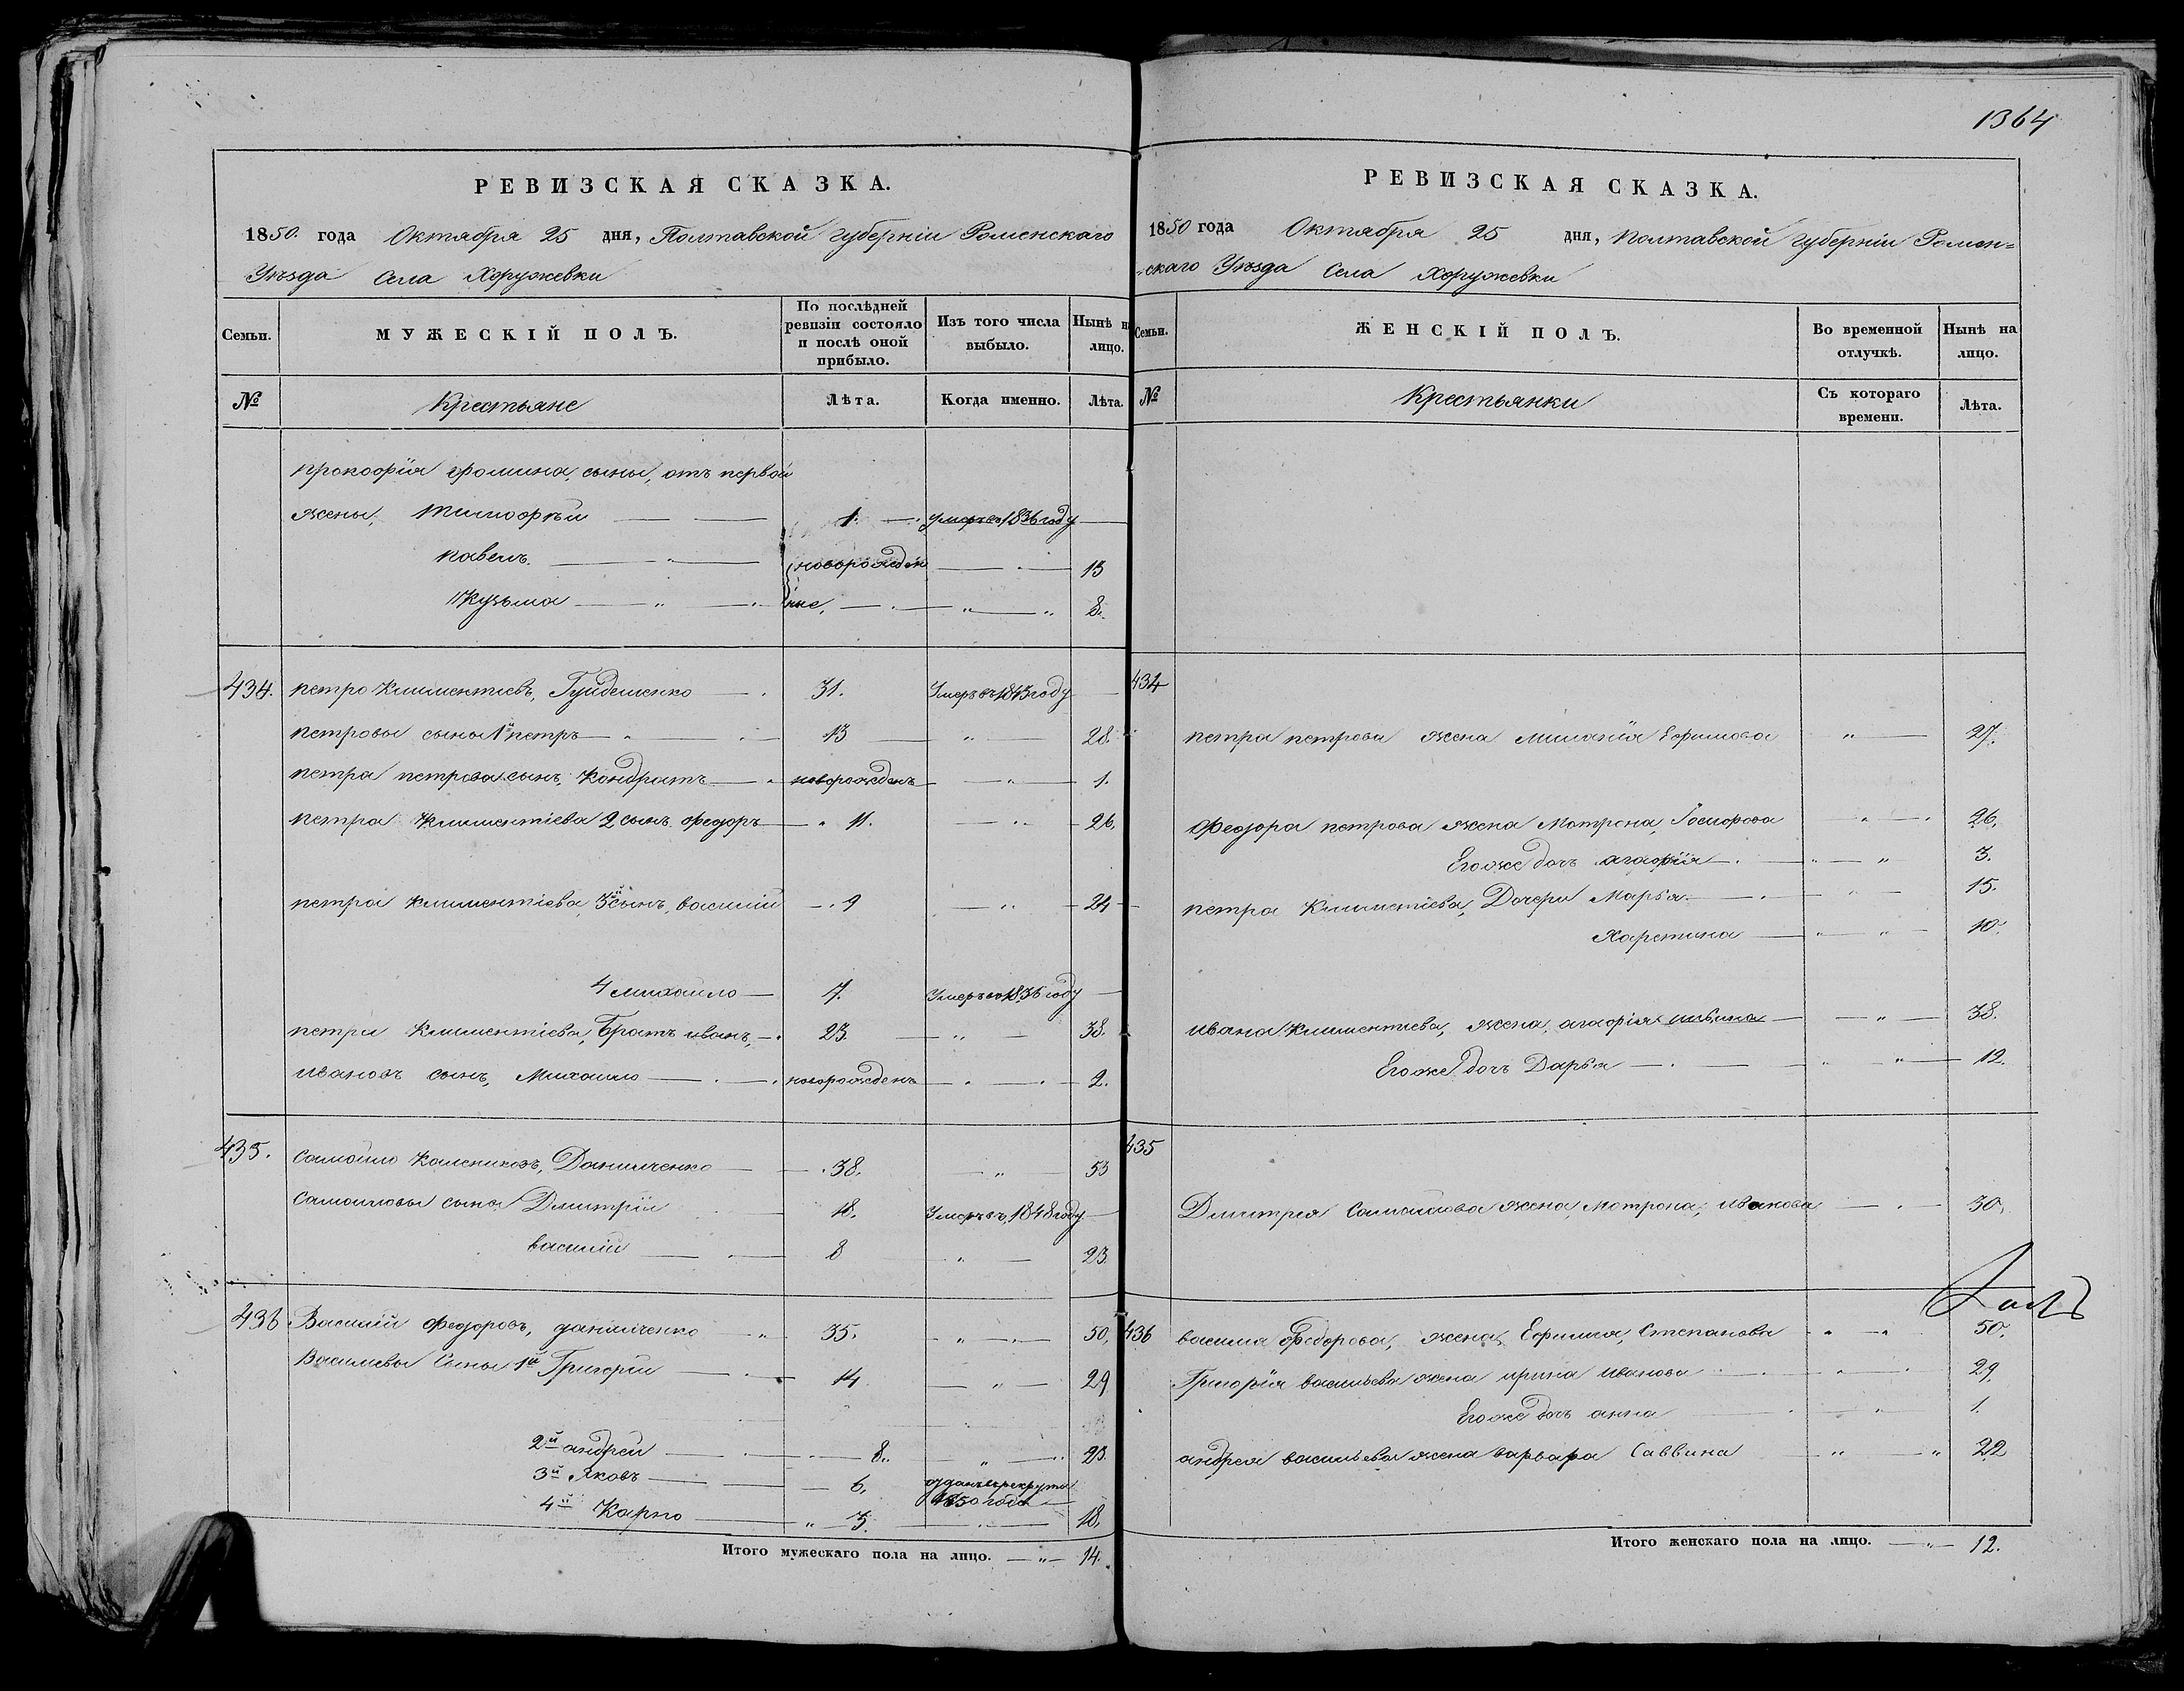 1364
РЕВИЗСКАЯ СКАЗКА.
1850. года Октября 25 дня, Полтавской губерніи Роменскаго
Уѣзда Села Хоружевки
Семьи. МУЖЕСКІЙ ПОЛЪ. По послѣдней ревизіи состояло и послѣ оной прибыло. Изъ того числа выбыло. Нынѣ на лицо.
№ Крестьяне Лѣта. Когда именно. Лѣта.
прокофія фомина, сыны, отъ первой
жены, Тимофѣй 1. умеръ въ 1836 году
павелъ новорожден 13
Кузьма ные, 8.
434. петро Климентіевъ, 31. Умеръ въ 1843 году
петровы сыны 1й петръ 13 28.
петра петрова сынъ, Кондратъ новорожденъ 1.
петра Климентіева 2 сынъ федоръ 11. 26.
петра климентіева, 3й сынъ, василій 9 24
4 михайло 7. Умеръ въ 1836 году
петра Климентіева, Братъ иванъ, 23. 38.
ивановъ сынъ, Михаило новорожденъ 2.
435. Самойло Даниленко 38. 53
Самойловы сыны Дмитрій 18. Умеръ въ 1848 году
василій 8 23.
436 Василій Федоровъ, даниленко 35. 50,
Василіевы Сыны 1й Григорій 14 29
2й андрей 8. 23.
3й Яковъ 6. отданъ въ рекруты
1850 года
4й Карпо 3. 18.
Итого мужескаго пола на лицо. 14.
РЕВИЗСКАЯ СКАЗКА.
1850 года Октября 25 дня, полтавской губерніи Ромен=
скаго Уѣзда Села Хоружевки
Семьи. ЖЕНСКІЙ ПОЛЪ. Во временной отлучкѣ. Нынѣ на лицо.
№ Крестьянки Съ котораго времени. Лѣта.
434
петра петрова жена миланія Ефимова 27.
федора петрова жена Мотрона, 26.
Егоже дочь агафія 3.
петра Климентіева, Дочери Марья 15.
Харетина 10.
ивана Климентіева, жена, агафія 38.
Егоже дочь Дарья 12.
435
Дмитрія Самойлова жена, мотрона, иванова 30.
436 василія Федорова, жена, Ефимія, Степанова 50.
Григорія васильева жена ирина иванова 29.
Егоже дочь анна 1.
андрея васильева жена варвара Саввина 22
Итого женскаго пола на лицо. 12.